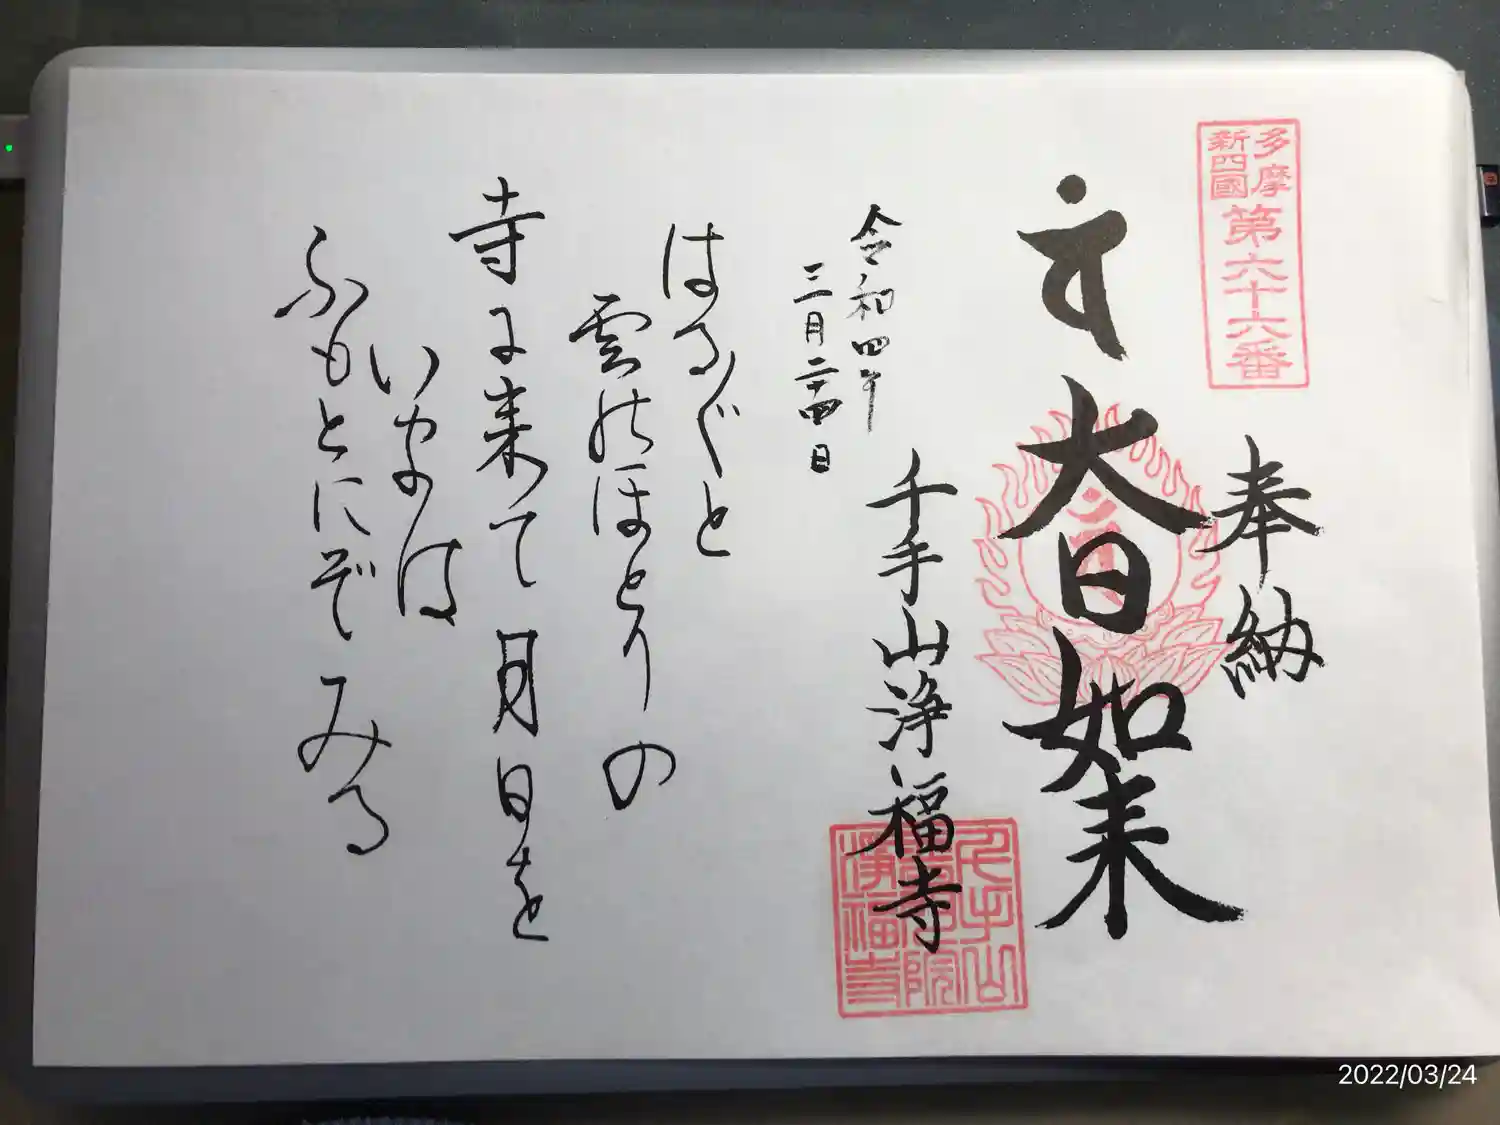 多摩
新四國
第六十六番
奉納
大日如来
千手山浄福寺
令和四年
三月二十四日
はる〲と
雲のほとりの
寺に来て月日を
いまは
ふもとにぞみる
千手山
淨福寺
2022/03/24